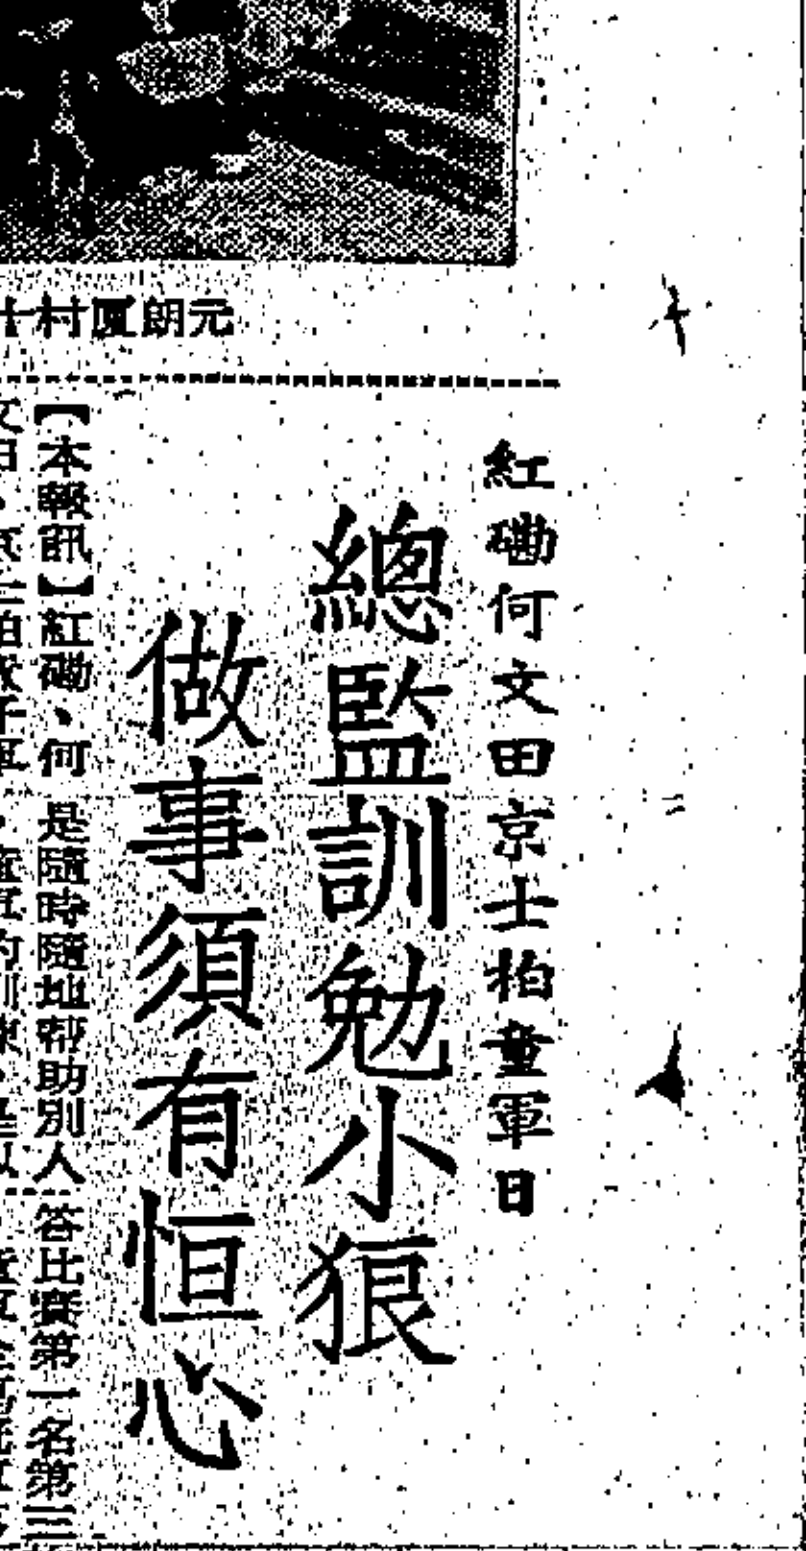 元朗廈村
紅磡何文田京士柏童軍日
總監訓勉小狼
做事須有恒心
【本報訊】紅磡、何
是隨時隨地帮助別人
答比賽第一名第三